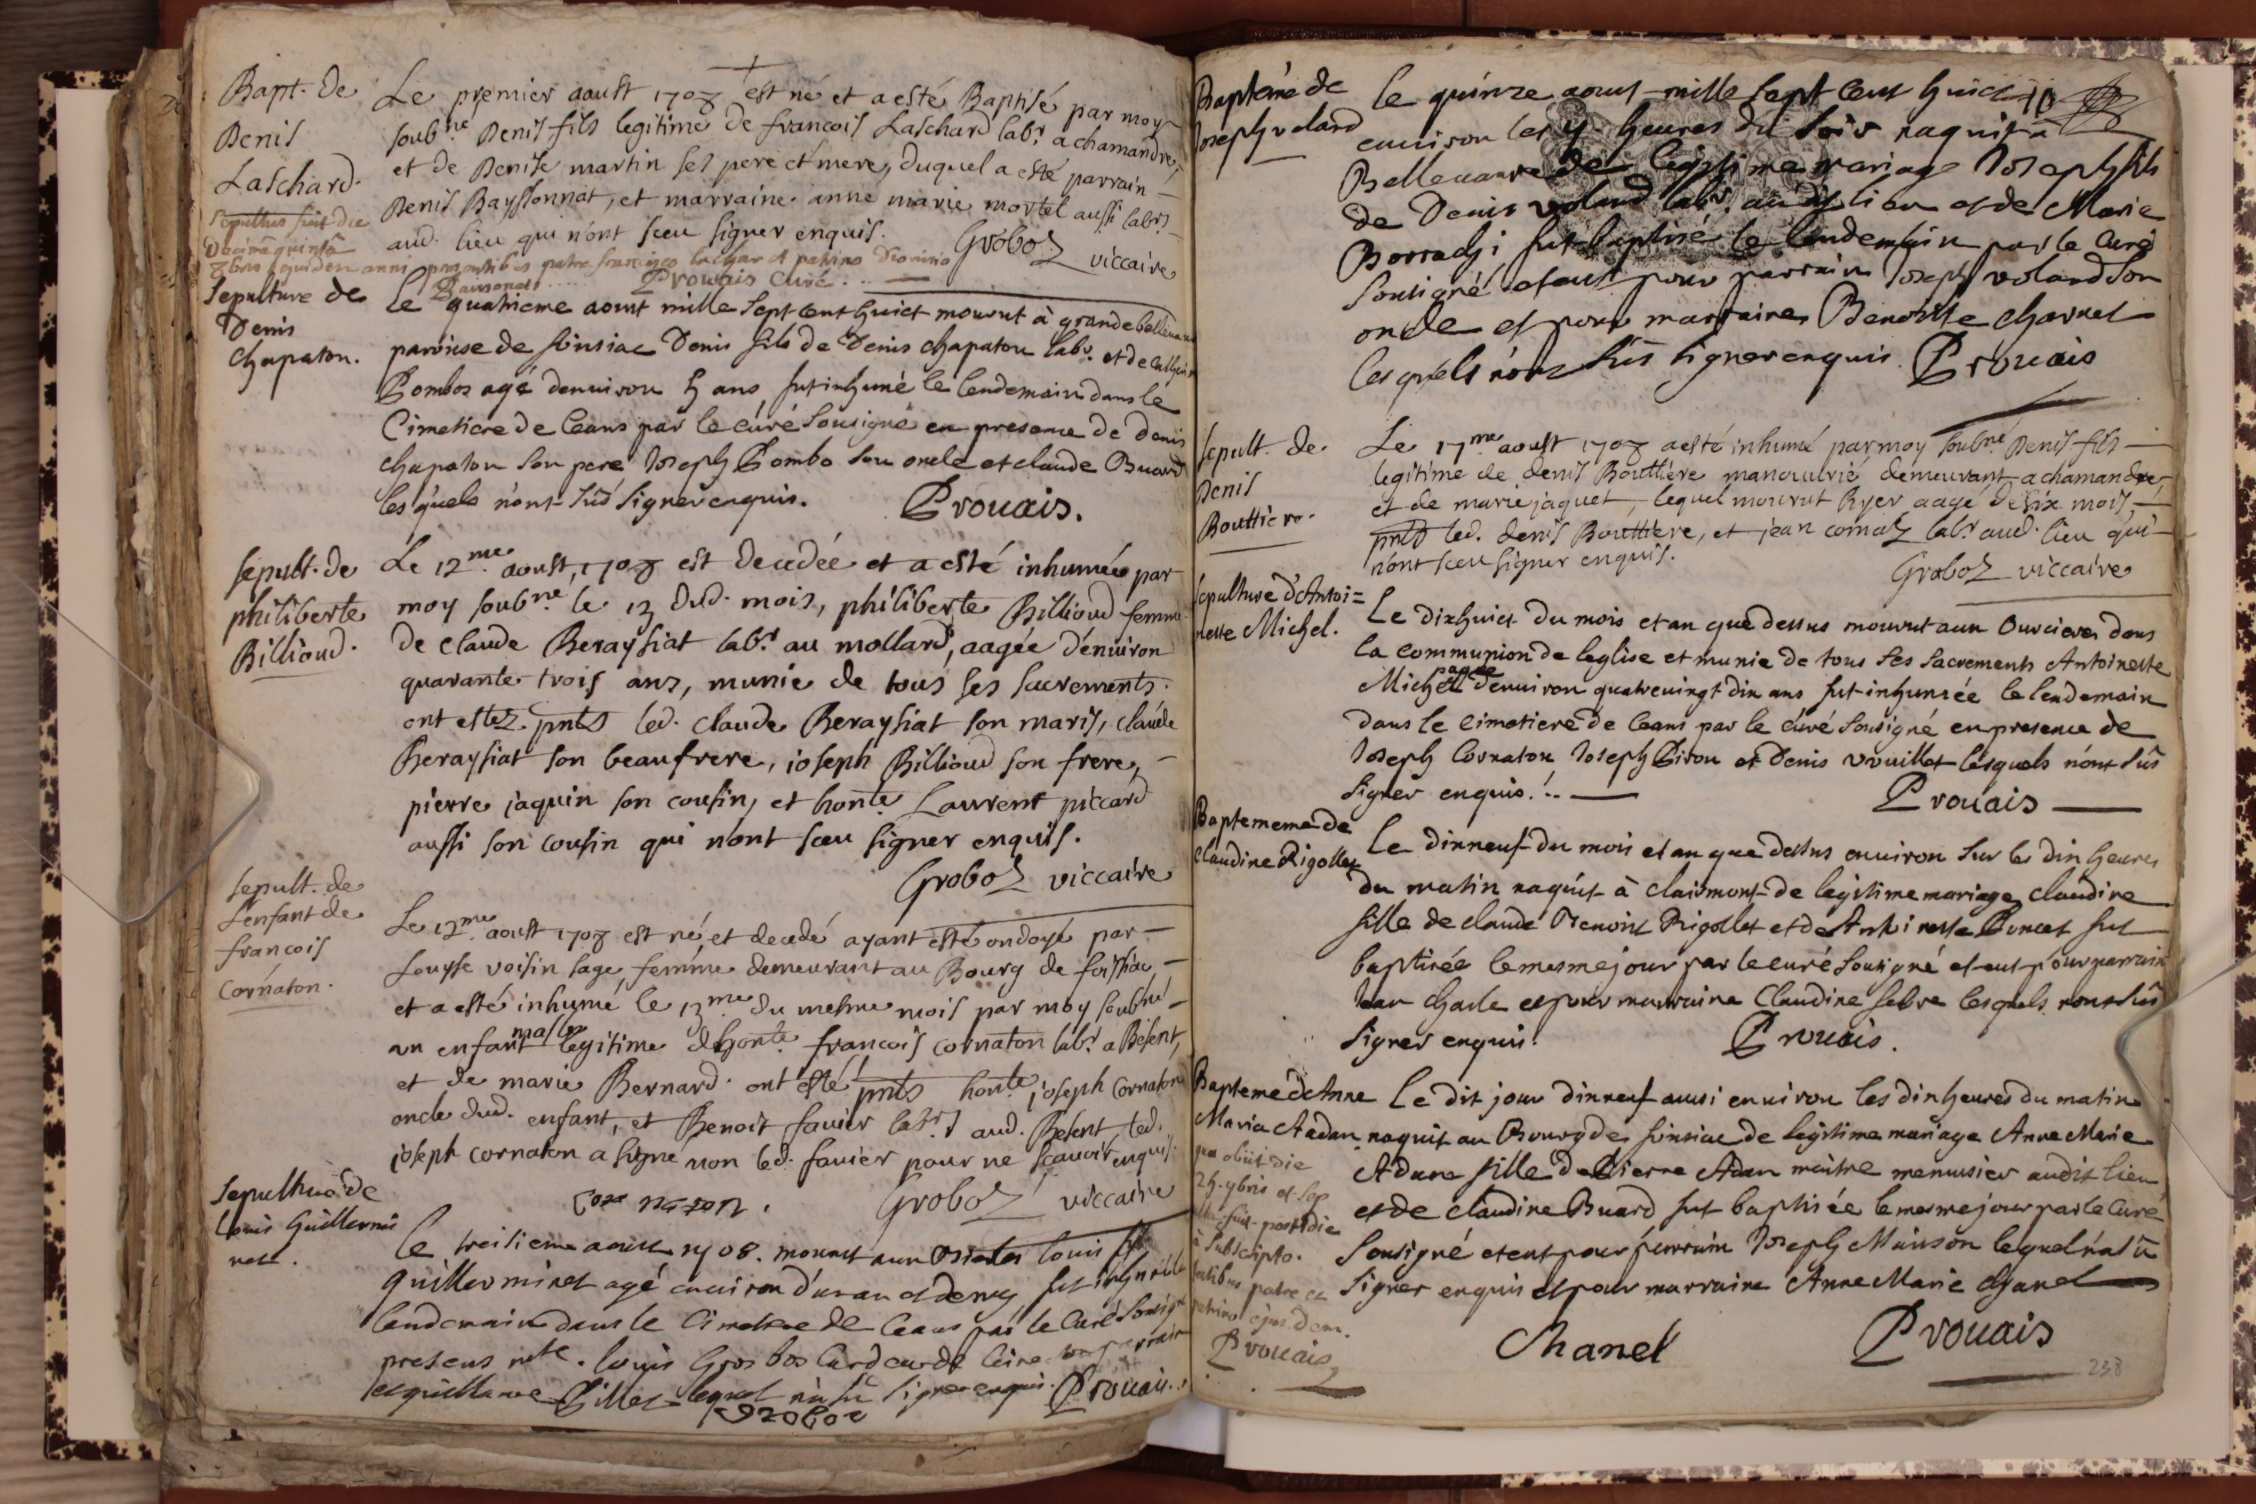 Bapt. de
Denis
Laschard.
Le premier aoust 1708 est né et a esté Baptisé par moy
soub.né Denis fils legitime de francois Laschard lab.r a chamandre,
et de Denise martin ses pere et mere, duquel a esté parrain
Denis Bayssonnat, et marraine anne marie mortel aussi lab.rs
aud. lieu qui n'ont sceu signer enquis. Groboz viccaire
Sepultus fuit die
decima quinta
8bris eiusdem anni praesentibus patre francisco lachar et patrino Dionisio
Baysonat Prouais curé
Sepulture de
Denis
chapaton.
Le quatrieme aoust mille sept cent huict mourut à grande bellevaure
paroisse de foissiac Denis fils de Denis chapaton lab.r et de
Pombos agé denuiron 5 ans, fut inhumé le lendemain dans le
Cimetiere de ceans par le curé sousigné en presence de denis
chapaton son pere Joseph Pombo son oncle et claude Buard
lesquels n'ont sus signer enquis. Prouais.
sepult. de
philiberte
Billioud.
Le 12.me aoust, 1708 est decedée et a esté inhumée par
moy soub.né le 13 dud. mois, philiberte Billioud femme
de claude Beraysiat lab.r au mollard, aagée d'enuiron
quarante trois ans, munie de tous ses sacrements.
ont estez pnts led. claude Beraysiat son maris, claude
Beraysiat son beaufrere, ioseph Billioud son frere,
pierre jaquin son cousin, et hon.te Laurent piccard
aussi son cousin qui n'ont sceu signer enquis.
Groboz viccaire
sepult. de
l'enfant de
francois
cornaton.
Le 12.me aoust 1708 est né, et decedé ayant esté ondoyé par
Louyse voisin sage femme demeurant au Bourg de foissiac,
et a esté inhumé le 13.me du mesme mois par moy soub.né
un enfant masle legitime d'hon.te francois cornaton lab.r a Besent,
et de marie Bernard. ont esté pnts hon.te ioseph cornaton
oncle dud. enfant, et Benoit fauier lab.r aud. Besent led.
ioseph cornaton a signé non led. fauier pour ne scauoir enquis.
cornaton. Groboz viccaire
Sepulture de
Louis Guillermi
net.
Le treisieme aoust 1708. mourut aux louis
Guillerminet agé enuiron d'un an et demy fut inhumé le
lendemain dans le Cimetiere de ceans par le Curé sousigné
presens m.re louis Grosbos parrain
et guillaume Pillet lequel n'a su signer enquis. Prouais.
Grobos
Bapteme de
Joseph voland
Le quinze aoust mille sept cent huict
enuiron les 4 heures du soir naquit à
Bellevaure de legitime mariage Joseph fils
de Denis voland lab.r audit lieu et de Marie
Borradji fut baptisé le lendemain par le Curé
sousigné et eut pour parrain Joseph voland son
oncle et pour marraine Benoiste charnel
lesquels n'ont sus signer enquis Prouais
sepult. de
Denis
Bouttiere.
Le 17.me aoust 1708 a esté inhumé par moy soub.né Denis fils
legitime de denis Bouttiere manouvrié demeurant a chamandre,
et de marie jaquet, lequel mourut hyer aagé de six mois,
pnts led. denis Bouttiere, et jean cornaz lab.r aud. lieu qui
n'ont sceu signer enquis. Groboz viccaire
Sepulture d'Antoi=
nette Michel.
Le dixhuict du mois et an que dessus mourut aux Ourcieres dans
la communion de leglise et munie de tous ses sacrements Antoinette
Michel agée denuiron quatrevingt dix ans fut inhumée le lendemain
dans le cimetiere de ceans par le curé sousigné en presence de
Joseph Cornaton Joseph Piron et Denis vvuillet lesquels n'ont sus
signer enquis. Prouais
Baptememe de
Claudine Rigollet
Le dixneuf du mois et an que dessus enuiron sur les dix heures
du matin naquit à clairmont de legitime mariage claudine
fille de claude Benoist Rigollet et de Antoinette Poncet fut
baptisée le mesme jour par le curé sousigné et eut pour parrain
et pour marraine Claudine febre lesquels n'ont sus
signer enquis. Prouais.
Bapteme d'Anne
Marie Aadan
Le dit jour dixneuf aussi enuiron les dix heures du matin
naquit au Bourg de foissiac de legitime mariage Anne Marie
Adane fille de Pierre Adan maitre menuisier audit lieu
et de claudine Buard fut baptisée le mesme jour par le Curé
sousigné et eut pour parrain Joseph Maisson lequel n'a su
signer enquis et pour marraine Anne Marie chanel
quae obiit die
24. 9bris et sep
ulta fuit postridie
à subscripto.
patre et
patrino ejusdem.
Prouais
Chanel Prouais
238